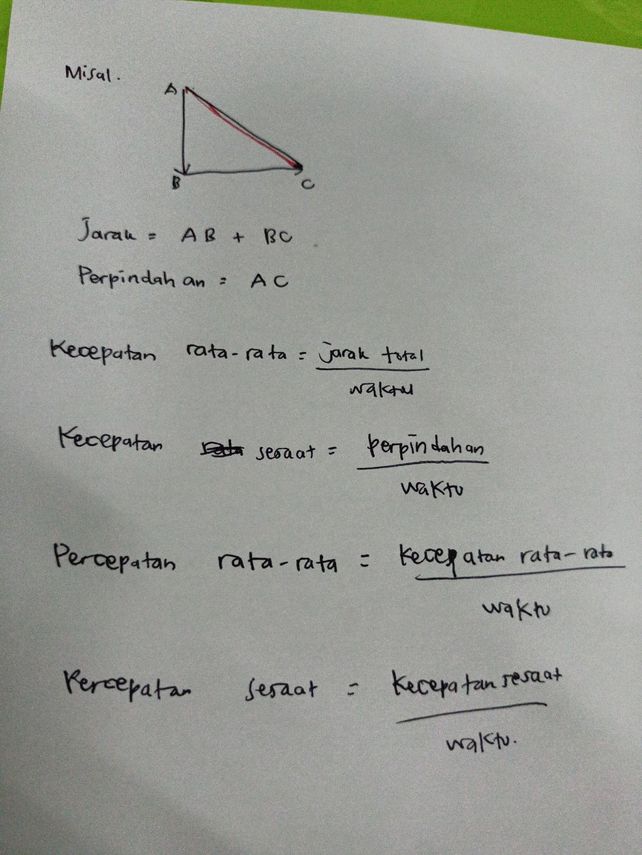 Misal.
A
B
C
Jarak = AB + BC
Perpindahan = AC
Kecepatan rata-rata = jarak total
waktu
Kecepatan sesaat = perpindahan
waktu
Percepatan rata-rata = Kecepatan rata-rata
waktu
Percepatan sesaat = Kecepatan sesaat
waktu.